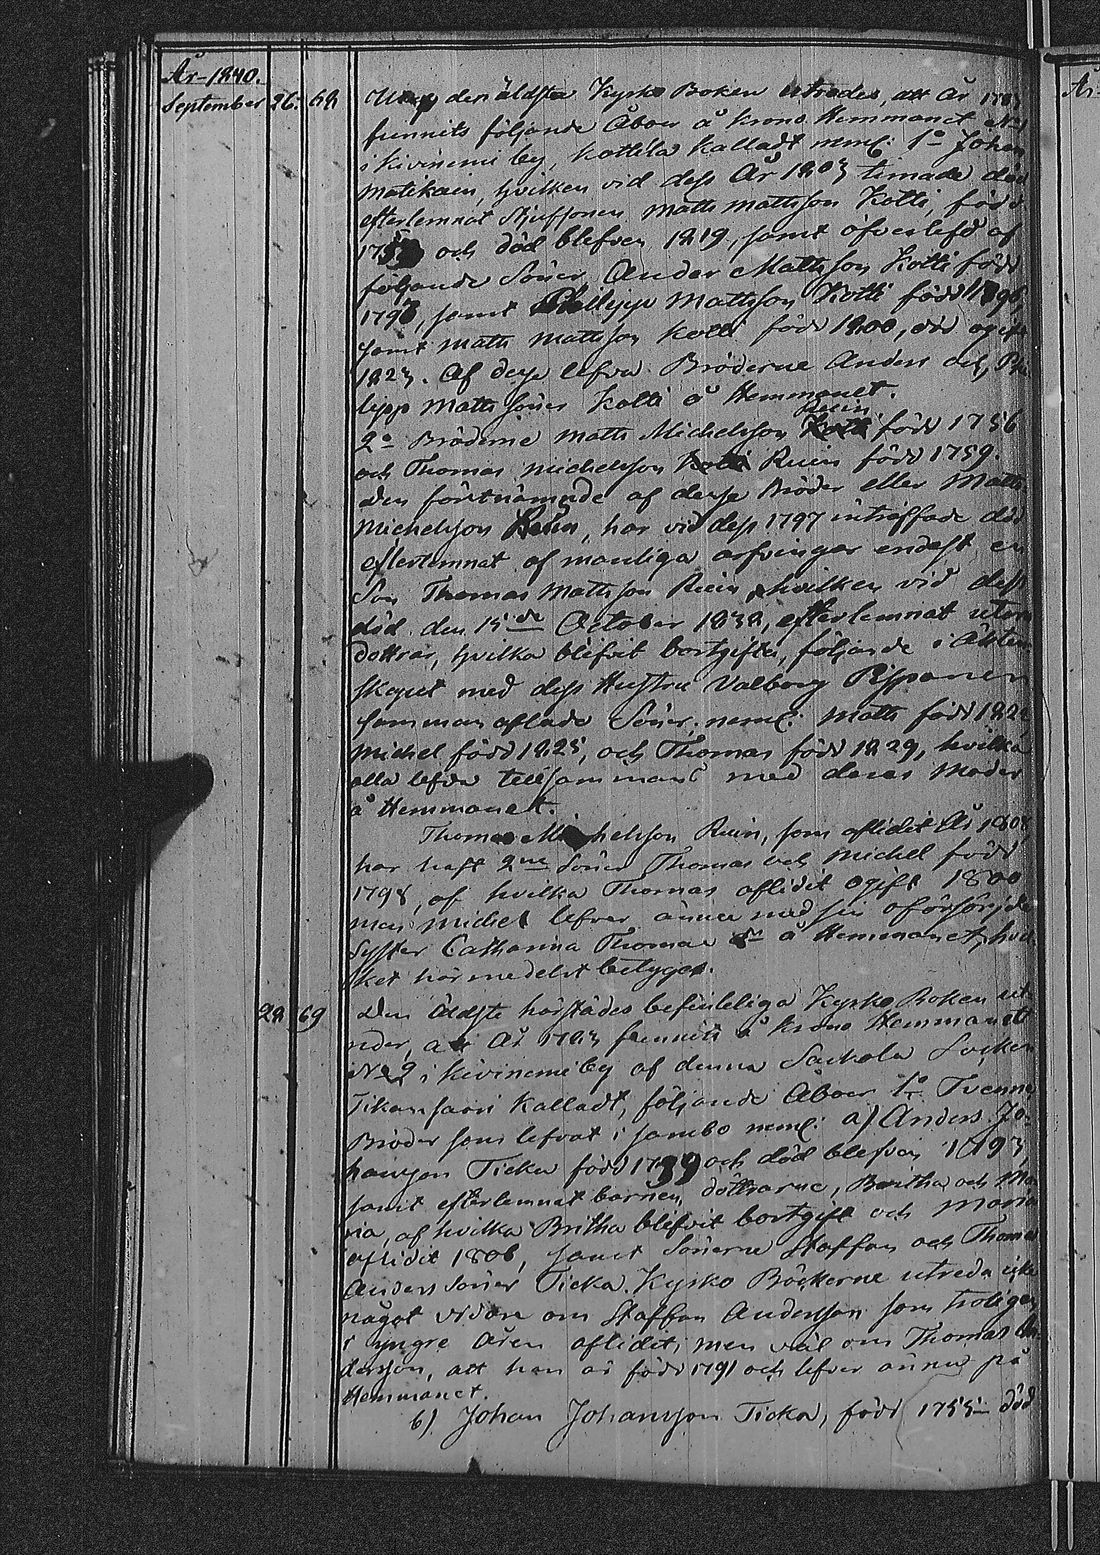 År 1840.
September 26. 68 Utaf den äldsta Kyrko Boken utredes, att År 1783
funnits följande Åboer å Krono Hemmanet No 1
i Kivinemi by, Kottila kalladt neml: 1o Johan
Matikain, hvilken vid dess År 1803 timade död
efterlemnat Styfsonen Matts Mattsson Kotti, född
och död blefven 1819, samt öfverlefd af
följande Söner, Anders Mattsson Kotti född
1793, samt Philipp Mattsson Kotti född 1796,
samt Matts Mattsson Kotti född 1800, död ogift
1823. Af desse lefva Bröderne Anders och Phi
lipp Matts Söner Kotti å Hemmanet.
2o Bröderne Matts Michelsson Ruin född 1756
och Thomas Michelsson Ruin född 1759.
Den förstnämnde af desse Bröder eller Matts
Michelsson Ruin, har vid dess 1797 inträffade död
efterlemnat af manliga arfvingar endast en
Son Thomas Mattsson Ruin, hvilken vid dess
död den 15de October 1838, efterlemnat utom
döttrar, hvilka blifvit bortgifta, följande i Äkten
skapet med dess Hustru Valborg Pispanen
samman aflade Söner, neml: Matts född 1822
Michel född 1825, och Thomas född 1829, hvilka
alla lefva tillsammans med deras Moder
å Hemmanet.
Thomas Michelsson Ruin, som aflidit År 1808
har haft 2ne Söner Thomas och Michel född
1798, af hvilka Thomas aflidit ogift 1800
men Michel lefver ännu med sin oförsörjda
Syster Catharina Thomae dr å Hemmanet, hvil
ket härmedelst betygas.
28 69 Den äldste härstädes befinteliga Kyrko Boken ut
reder, att År 1783 funnits å Krono Hemmanet
No 2 i Kivinemi by af denna Sackola Socken
Tikansaari kalladt, följande Åboer 1o Tvenne
Bröder som lefvat i sambo neml: a) Anders Jo-
hansson Ticka född 1739 och död blefven 1793
samt efterlemnat barnen, döttrarne, Britha och Ma
ria, af hvilka Britha blifvit bortgift och Maria
aflidit 1806, samt Sönerne Staffan och Thomas
Anders Söner Ticka. Kyrko Böckerne utreda icke
något vidare om Staffan Andersson som troligen
i yngre åren aflidit, men väl om Thomas An-
dersson, att han är född 1791 och lefver ännu på
Hemmanet.
b) Johan Johansson Ticka, född 1755 död